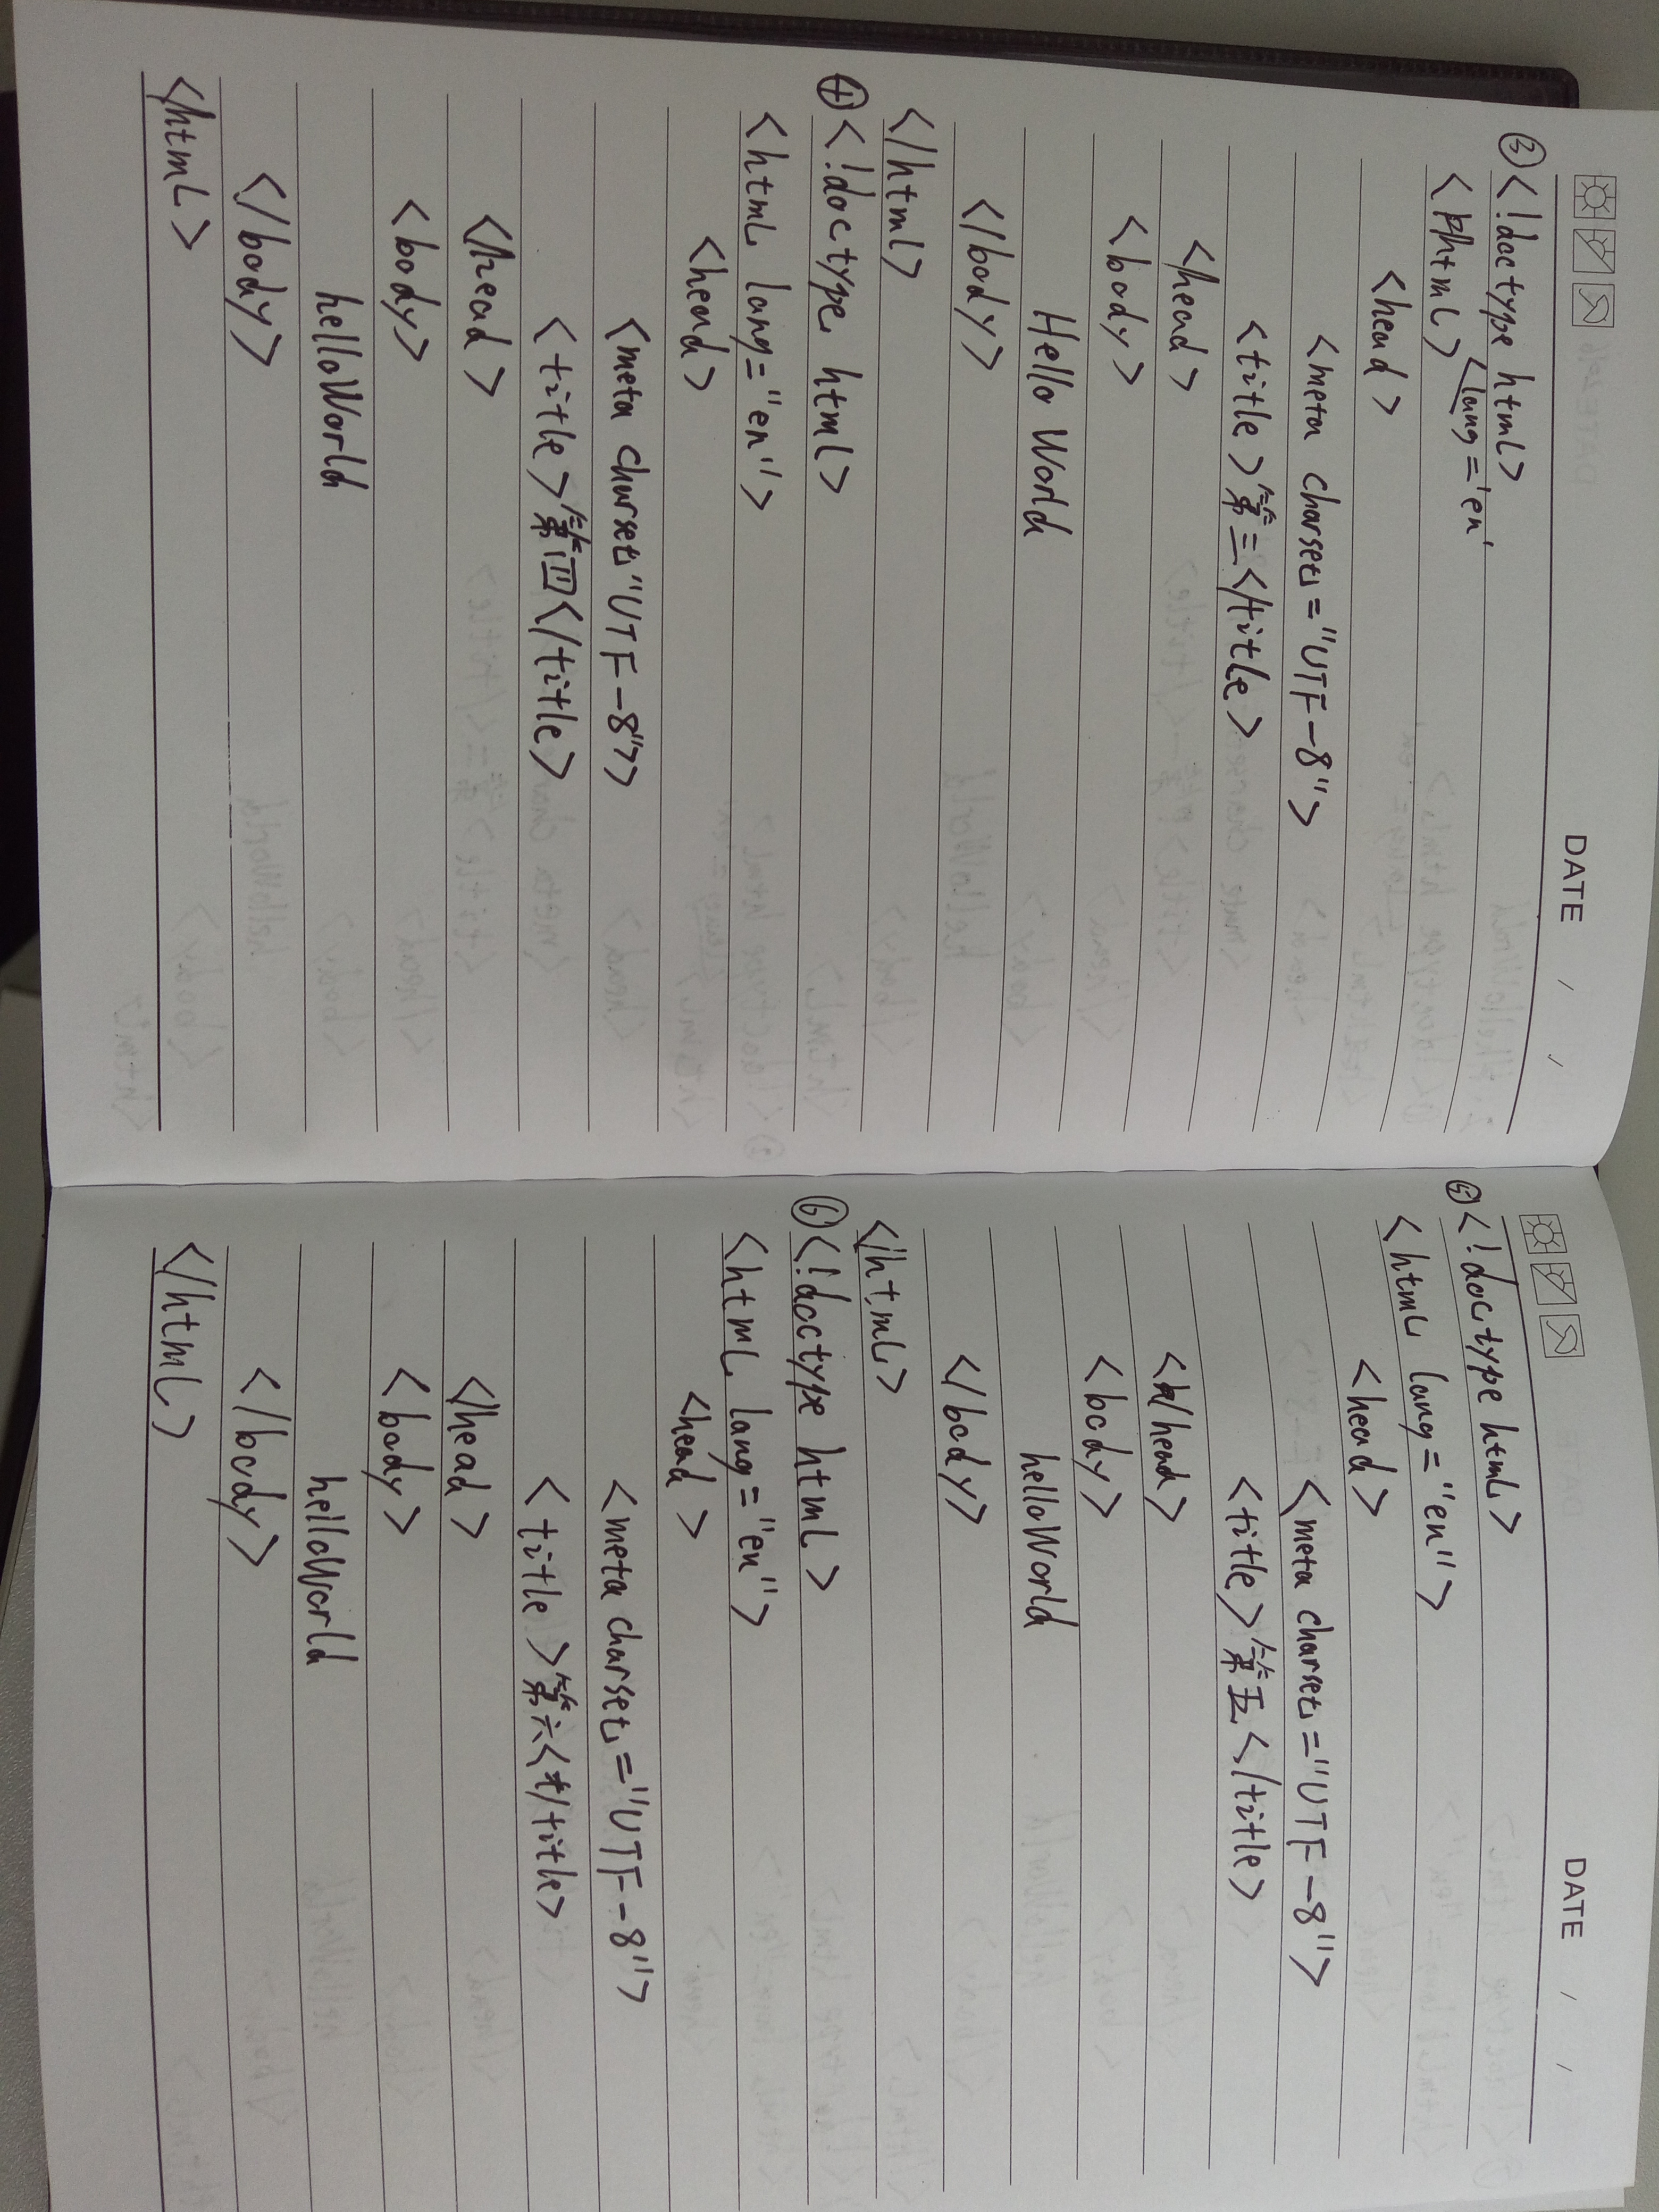 DATE / /
③<!doctype html>
<html> <lang='en'
<head>
<meta charset="UTF-8">
<title>第三</title>
</head>
<body>
Hello World
</body>
</html>
④<!doctype html>
<html lang="en">
<head>
<meta charset"UTF-8">
<title>第四</title>
</head>
<body>
helloWorld
</body>
</html>
DATE / /
⑤<!doctype html>
<html lang="en">
<head>
<meta charset="UTF-8">
<title>第五</title>
</head>
<body>
helloWorld
</body>
</html>
⑥<!doctype html>
<html lang="en">
<head>
<meta charset="UTF-8">
<title>第六</title>
</head>
<body>
helloWorld
</body>
</html>